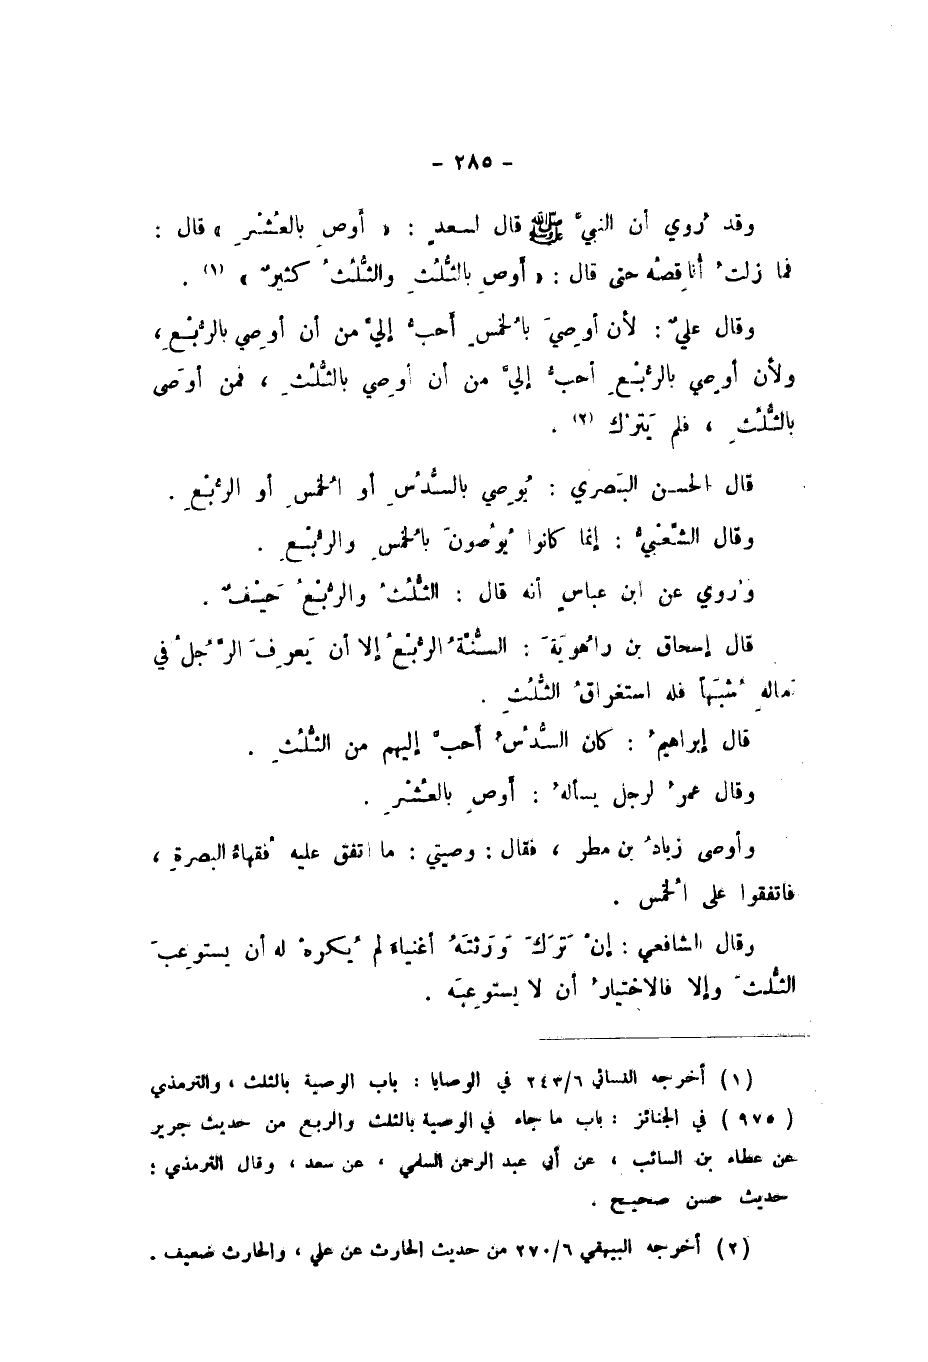 - ٢٨٥ -
وقد رُوي أن النبيَّ ﷺ قال لسعدٍ : « أَوصِ بالعُشْرِ » قال :
فما زلتُ أُناقِصُه حتى قال : « أَوصِ بالثُّلُثِ والثُّلُثُ كثيرٌ » (١) .
وقال عليٌّ : لأن أوصِيَ بالخُمْسِ أَحبُّ إليَّ من أن أوصِي بالرُّبْعِ ،
ولأن أوصِي بالرُّبْعِ أحبُّ إليَّ من أن أوصِي بالثُّلُثِ ، فمن أوصَى
بالثُّلُثِ ، فلم يَترُك (٢) .
قال الحسن البَصري : يُوصِي بالسُّدُسِ أو الخُمسِ أو الرُّبْعِ .
وقال الشَّعْبيُّ : إنما كانوا يُوصُونَ بالخُمسِ والرُّبْعِ .
ورُوي عن ابن عباسٍ أنه قال : الثُّلُثُ والرُّبْعُ حَيْفٌ .
قال إسحاق بن راهُويَهَ : السُّنَّةُ الرُّبْعُ إلا أن يَعرِفَ الرَّجُلُ في
مالهِ شُبَهاً فله استغراقُ الثُّلُثِ .
قال إبراهيمُ : كان السُّدْسُ أَحبَّ إليهم من الثُّلُثِ .
وقال عمرُ لرجل يسألهُ : أَوصِ بالعُشْرِ .
وأوصى زيادُ بن مطر ، فقال : وصيتي : ما اتفق عليه فُقهاءُ البصرةِ ،
فاتفقوا على الخُمس .
وقال الشافعي : إنْ تَرَكَ وَرَثتَهُ أغنياءَ لم يُكرهْ له أن يستوعِبَ
الثُّلثَ وإلا فالاختيارُ أن لا يستوعِبَه .
(١) أخرجه النسائي ٢٤٣/٦ في الوصايا : باب الوصية بالثلث ، والترمذي
( ٩٧٥ ) في الجنائز : باب ما جاء في الوصية بالثلث والربع من حديث جرير
عن عطاء بن السائب ، عن أبي عبد الرحمن السلمي ، عن سعد ، وقال الترمذي :
حديث حسن صحيح .
(٢) أخرجه البيهقي ٢٧٠/٦ من حديث الحارث عن علي ، والحارث ضعيف .